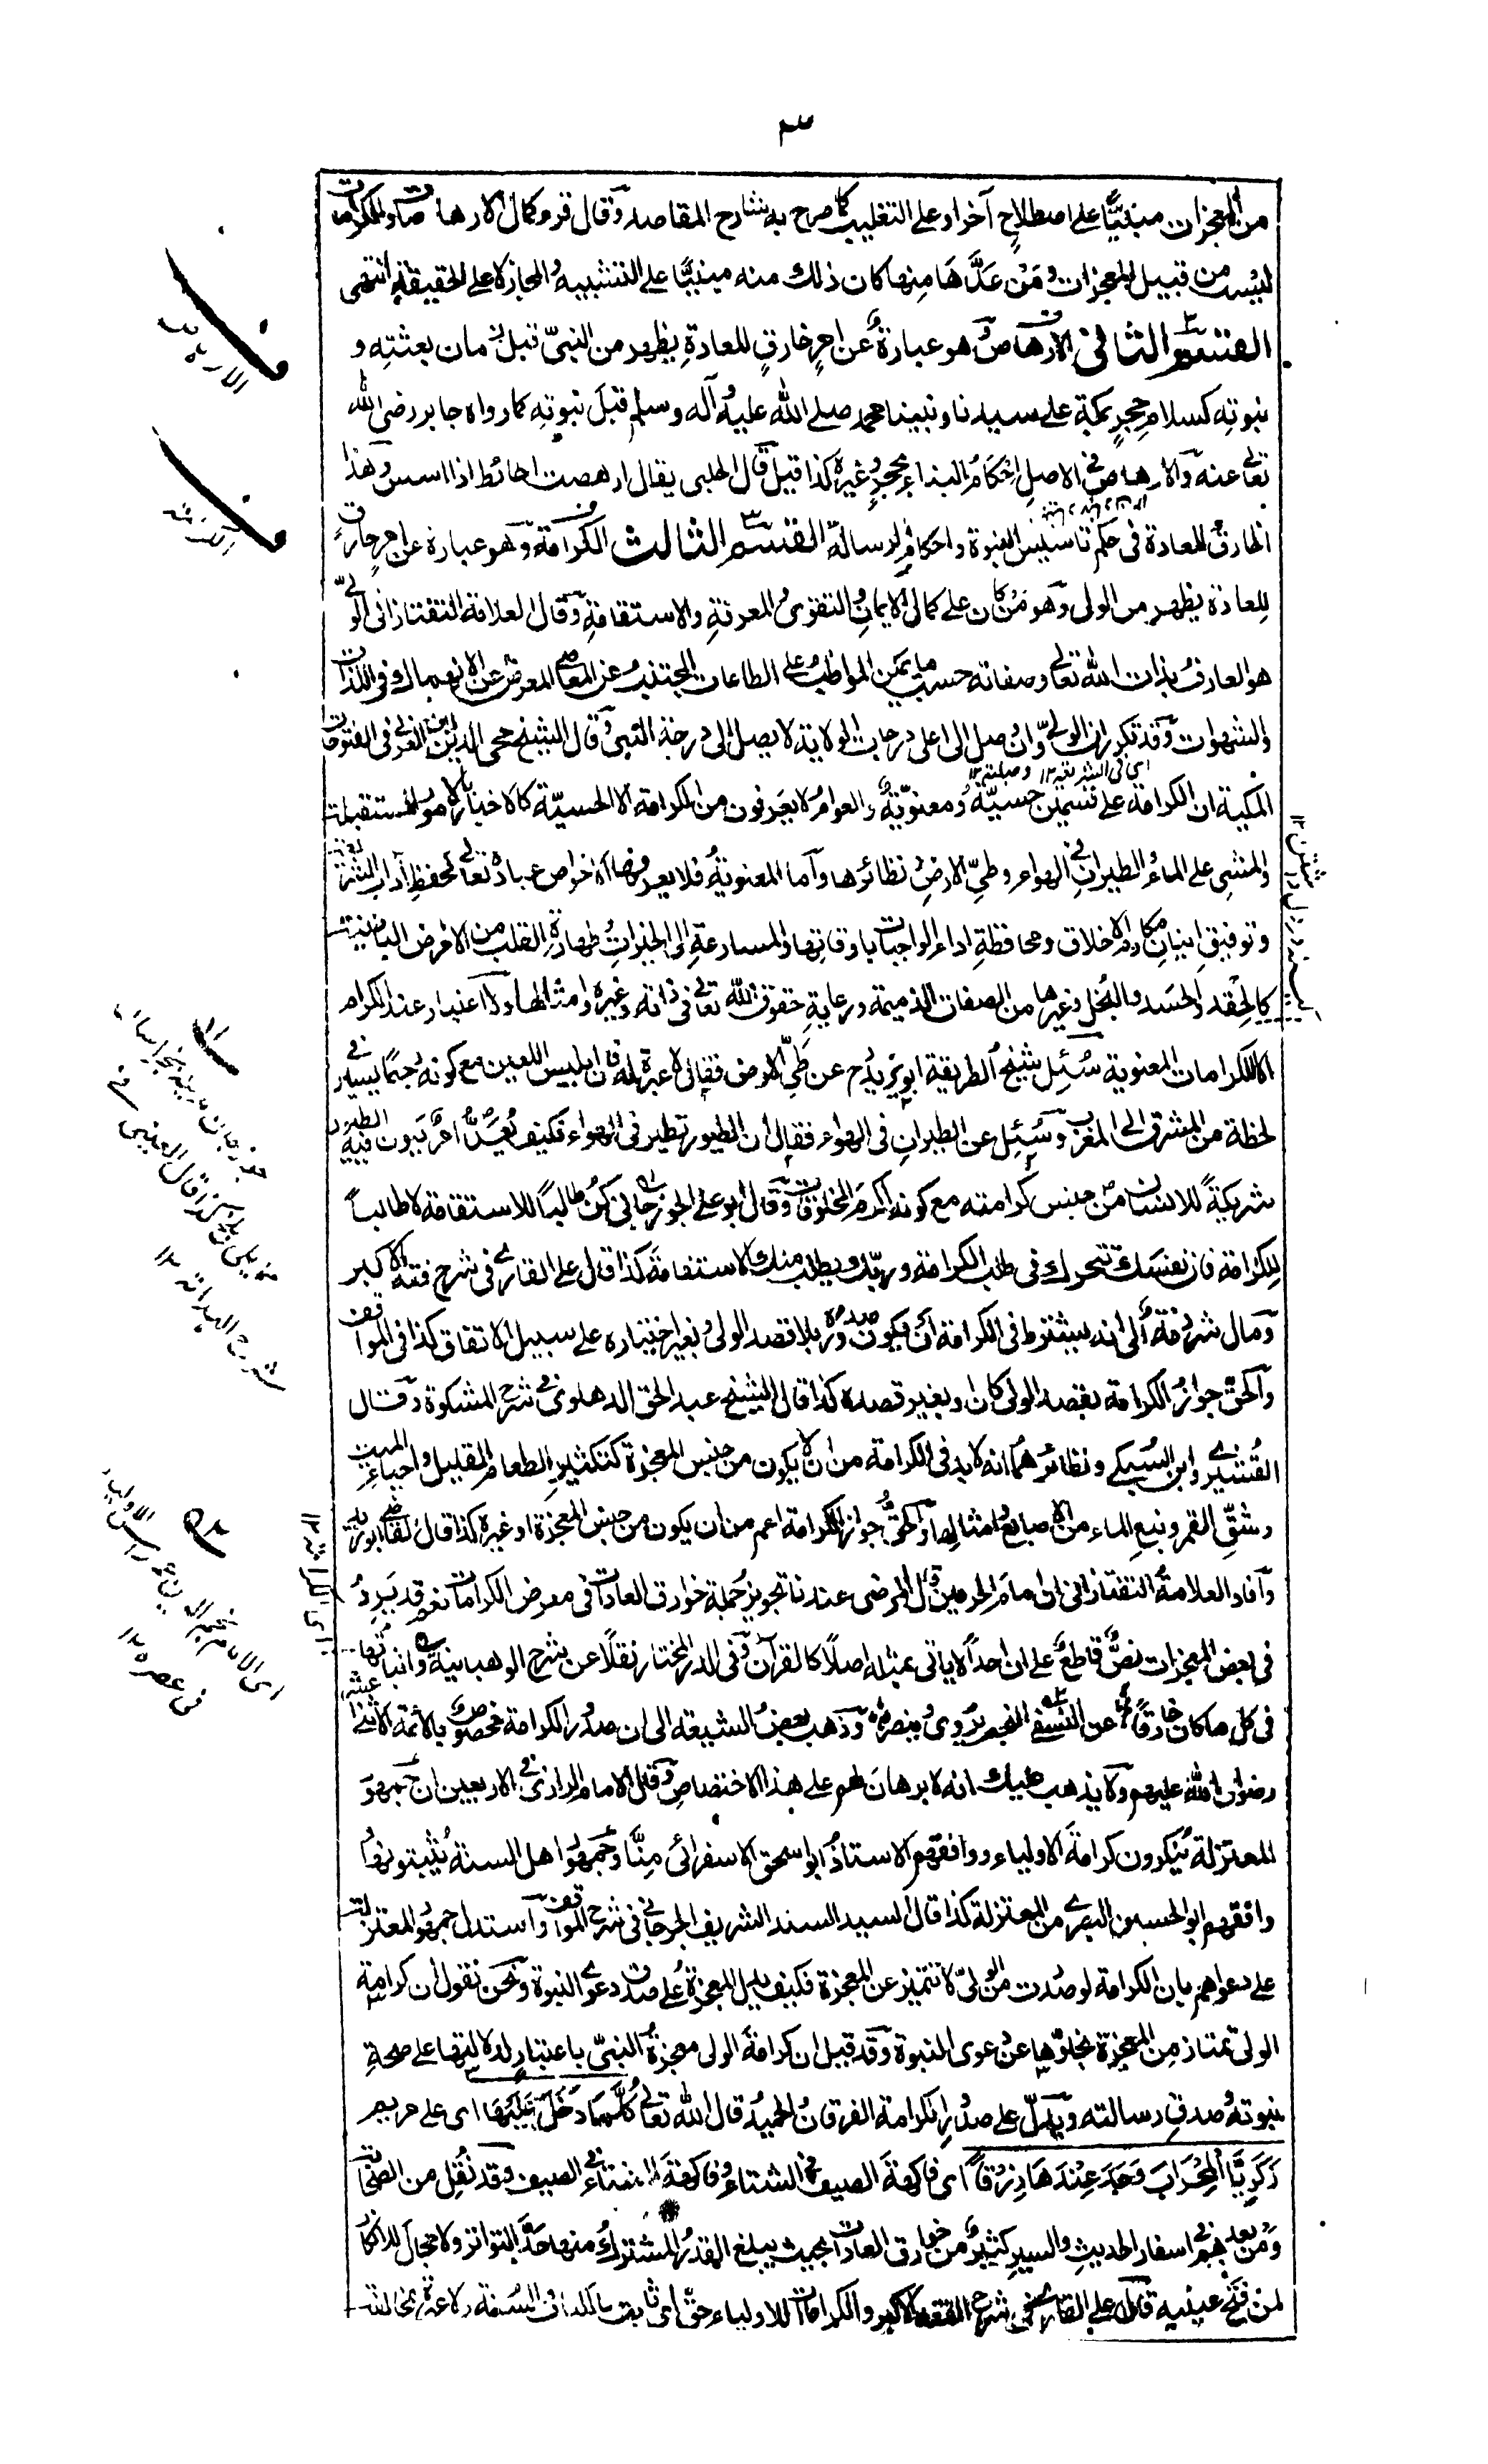 ٣
من المعجزات مبنيًّا على اصطلاحٍ آخر او على التغليب كما صرح به شارح المقاصد وقال قره كمال الارهاصات والكرامات
ليست من قبيل المعجزات ومَنْ عَدَّهَا مِنها كان ذلك منه مبنيًّا على التشبيه والمجاز لا على الحقيقةِ انتهى
القسم الثانى الارهاص وهو عبارةٌ عن امرٍ خارقٍ للعادةِ يظهر من النبىّ قبل زمان بعثتِه و
نبوتِه كسلامِ حجرٍ بمكة على سيدنا ونبينا محمد صلى الله عليه وآله وسلم قبلَ نبوتِه كما رواه جابر رضى الله
تعالى عنه والارهاص فى الاصل اِحْكَامُ البناءِ بحجرٍ وغيره كذا قيل قال الحلبى يقال ارهصت الحائط اذا اسس وهذا
الخارق للعادة فى حكم تاسيس النبوة واحكام الرسالة القسم الثالث الكرامة وهو عبارة عن امرٍ خارق
للعادة يظهر من الولى وهو مَنْ كان على كمال الايمانِ والتقوى والمعرفةِ والاستقامةِ وقال العلامة التفتازانى الولىّ
هو العارف بذات الله تعالى وصفاته حسب ما يمكن المواظب على الطاعات المجتنب عن المعاصى المعرض عن الانهماك فى اللذات
والشهوات وقد تكرر ان الولىّ وان وصل الى اعلى درجات الولاية لا يصل الى درجة النبى وقال الشيخ محى الدين ابن العربى فى الفتوحات
المكية ان الكرامة على قسمين حسيّة ومعنويّة والعوام لا يعرفون من الكرامة الا الحسيّة كالاخبار بالامور المستقبلة
والمشى على الماء والطيران فى الهواء وطىّ الارض ونظائرها وأما المعنوية فلا يعرفها الا خواص عباده تعالى كحفظِ آداب الشريعة
وتوفيقِ اتيانِ مكارم الاخلاق ومحافظةِ اداء الواجبات باوقاتها والمسارعةِ الى الخيراتِ وطهارةِ القلب من الامراض الباطنية
كالحِقْد والحَسَد والبُخل وغيرها من الصفات الذميمة ورعايةِ حقوق الله تعالى فى ذاته وغيره وامثالها ولا اعتبار عند الكرام
الا للكرامات المعنوية سُئِل شيخ الطريقة ابو يزيد رح عن طَىّ الارض فقال لا عبرة له فان ابليس اللعين مع كونه رجيمًا يسير فى
لحظة من المشرق الى المغرب وسُئِل عن الطيران فى الهواء فقال ان الطيور تطير فى الهواء فكيف يُعَدُّ امرٌ يكون فيه الطيور
شريكةً للانسان من جنس كرامته مع كونه اكرمَ المخلوقات وقال ابو على الجوزجانى كُنْ طالبًا للاستقامة لا طالبًا
للكرامة فان نفسَك تتحرك فى طلب الكرامة وربّك يطلب منك الاستقامةَ كذا قال على القارى فى شرح فقه الاكبر
ومال شرذمة الى انه يشترط فى الكرامة ان يكون صدوره بلا قصد الولى وبغير اختياره على سبيل الاتفاق كذا فى المواقف
والحقّ جوازُ الكرامة بقصد الولى كان او بغير قصده كذا قال الشيخ عبد الحق الدهلوى فى شرح المشكوة وقال
القُشَيرى وابن السُبكى ونظائرهُما انه لا بد فى الكرامة من ان لا يكون من جنس المعجزة كتكثير الطعام القليل واحياء الميت
وشقِّ القمر ونبعِ الماء من الاصابع وامثالها والحقّ جواز الكرامة اعم من ان يكون من جنس المعجزة او غيره كذا قال القاضى ابو زيد
وأفاد العلامة التفتازانى ان امام الحرمين قال المرضى عندنا تجويز جملة خوارق العادات فى معرض الكرامات نعم قد يَرِدُ
فى بعض المعجزات نصٌّ قاطعٌ على ان احدًا لا ياتى بمثله اصلًا كالقرآن وفى الدر المختار نقلًا عن شرح الوهبانية واثباتُها
فى كل ما كان خارقًا عن النسفى النجم يُرْوى وينصر وذهب بعض الشيعة الى ان صدور الكرامة مخصوص بالأئمة الاثنا عشر
رضوان الله عليهم ولا يذهب عليك انه لا برهانَ لهم على هذا الاختصاصِ ونقل الامام الرازى فى الاربعين ان جمهور
المعتزلة يُنكِرون كرامةَ الاولياء ووافقهم الاستاذُ ابو اسحق الاسفرائى مِنّا وجمهور اهل السنة يُثبِتونها
وافقهم ابو الحسين البصرى من المعتزلة كذا قال السيد السند الشريف الجرجانى فى شرح المواقف واستدل جمهور المعتزلة
على دعواهم بان الكرامة لو صدرت من الولىّ لا تتميز عن المعجزة فكيف يدل المعجزة على صدق دعوى النبوة ونحن نقول ان كرامة
الولى تمتاز من المعجزة بخلوّها عن دعوى النبوة وقد قيل ان كرامةَ الولى معجزةُ النبىّ باعتبار دلالتها على صحةِ
نبوته وصدقِ رسالته ويدلّ على صدور الكرامة الفرقان الحميد قال الله تعالى كُلَّمَا دَخَلَ عَلَيْهَا اى على مريم
زَكَرِيَّا الْمِحْرَابَ وَجَدَ عِنْدَهَا رِزْقًا اى فاكهةَ الصيف فى الشتاء وفاكهةَ الشتاء فى الصيف وقد نُقِل من الصحابة
ومن بعدهم فى اسفار الحديث والسير كثيرٌ من خوارق العادات بحيث يبلغ القدر المشترك منها حدَّ التواتر ولا مجال للانكار
لمن فتح عينيه قال على القارى فى شرح الفقه الاكبر والكرامات للاولياء حق اى ثابت بالكتاب والسنة ولا عبرة بمخالفة